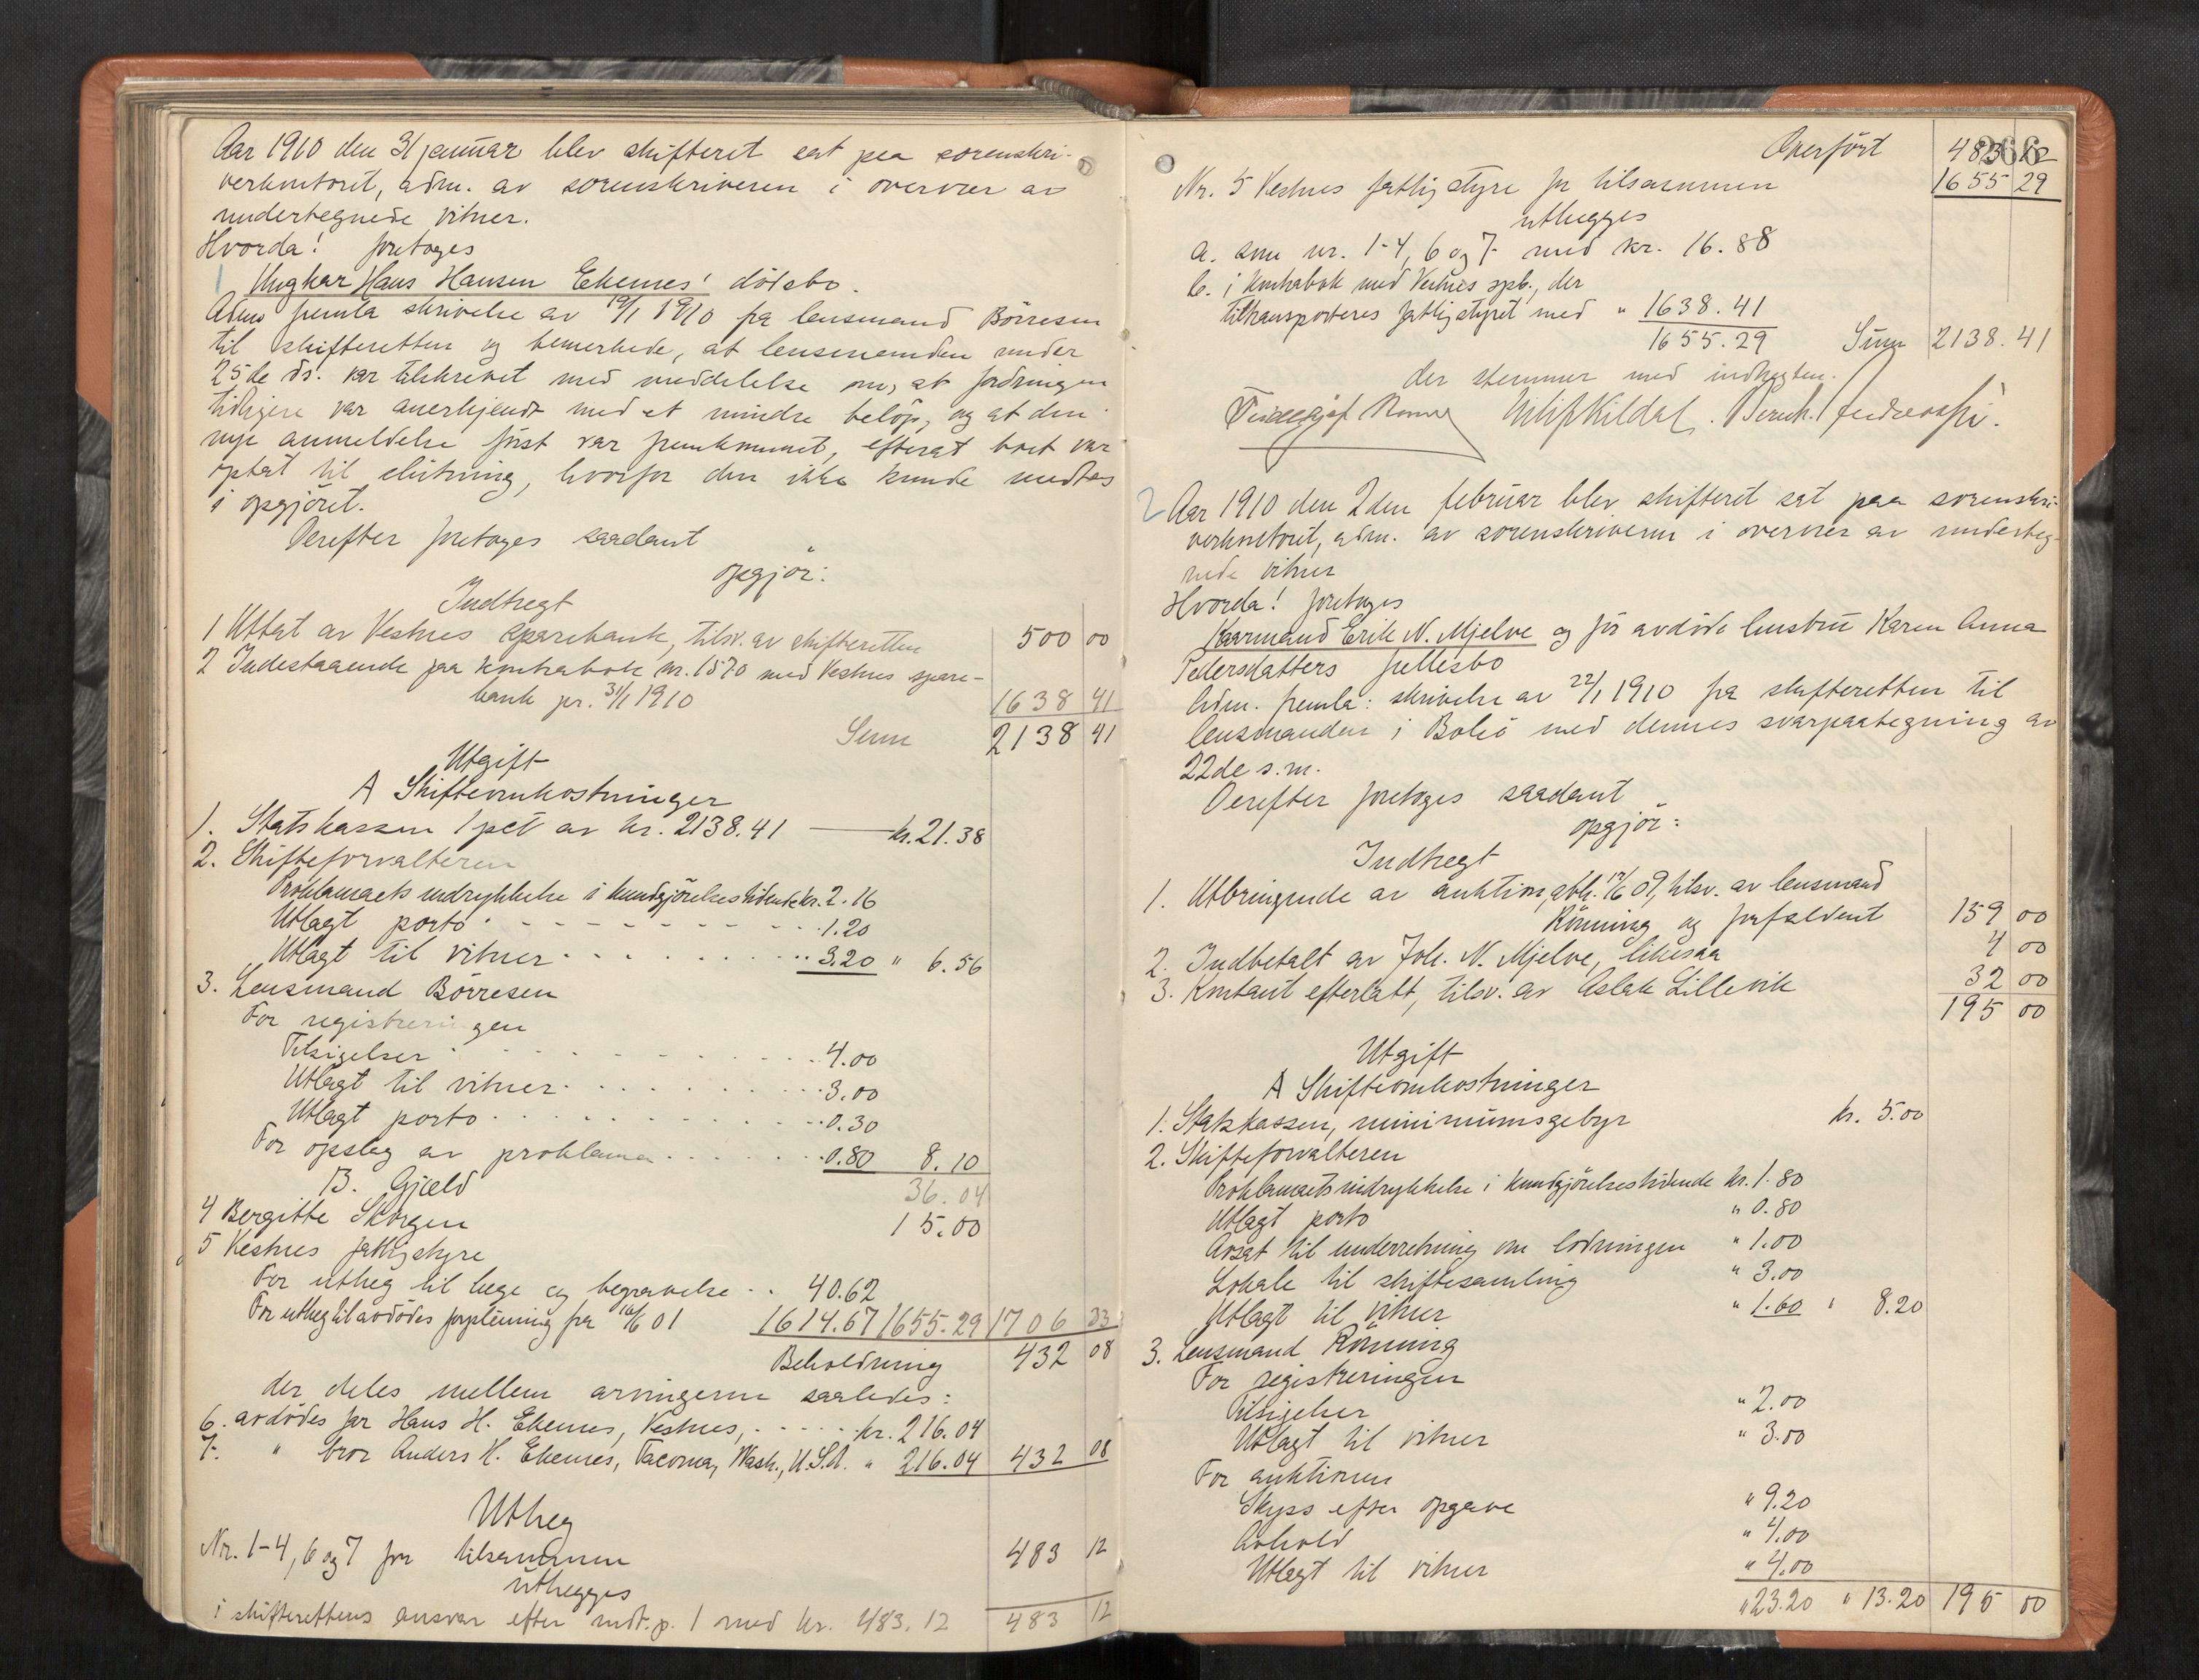 Aar 1910 den 31 januar blev skifteret sat paa sorenskri-
verkontoret, adm. av sorenskriveren i overvær av
undertegnede vitner.
Hvorda! foretoges
1 Ungkar Hans Hansen Ekernes' dødsbo.
Adm fremla skrivelse av 19/1 1910 fra lensmand Børresen
til skifteretten og bemerkede, at lensmanden under
25de ds. var tilskrevet med meddelelse om, at fordringen
tidligere var anerkjendt med et mindre beløp, og at den
nye anmeldelse først var fremkommet, efterat boet var
optat til slutning, hvorfor den ikke kunde medtas
i opgjøret.
Derefter foretoges saadant
opgjør:
Indtægt
1 Uttat av Vestnes sparebank, tilsv. av skifteretten 500 00
2 Indestaaende paa kontrabok nr. 1570 med Vestnes spare-
bank pr. 31/1 1910 1638 41
Sum 2138 41
Utgift
A Skifteomkostninger
1. Statskassen 1 pct av kr. 2138.41 — kr. 21.38
2. Skifteforvalteren
Proklamaets indrykkelse i kundgjørelsestidende kr. 2.16
Utlagt porto 1.20
Utlagt til vitner 3.20 " 6.56
3. Lensmand Børresen
For registreringen
Tilsigelser 4.00
Utlagt til vitner 3.00
Utlagt porto 0.30
For opslag av proklama 0.80 8.10
B. Gjæld 36.04
4 Bergitte Skorgen 15.00
5 Vestnes fattigstyre
For utlæg til læge og begravelse 40.62
For utlæg til avdødes forpleining fra 16/6 01 1614.67 1655.29 1706 33
Beholdning 432 08
der deles mellem arvingerne saaledes:
6. avdødes far Hans H. Ekernes, Vestnes, kr. 216.04
7. " bror Anders H. Ekernes, Tacoma, Wash., U.S.A. " 216.04 432 08
Utlæg
Nr. 1-4, 6 og 7 faar tilsammen 483 12
utlægges
i skifterettens ansvar efter indt. p. 1 med kr. 483.12 483 12
Overført 483 12
266
Nr. 5 Vestnes fattigstyre faar tilsammen 1655 29
utlægges
a. som nr. 1-4, 6 og 7 med kr. 16.88
b. i kontrabok med Vestnes spb., der
tiltransporteres fattigstyret med " 1638.41
1655.29 Sum 2138.41
der stemmer med indtægten.
2 Aar 1910 den 2den februar blev skifteret sat paa sorenskri-
verkontoret, adm. av sorenskriveren i overvær av underteg-
nede vitner
Hvorda! foretoges
Kaarmand Erik N. Mjelve og for avdøde hustru Karen Anna
Pedersdatters fellesbo
Adm. fremla: skrivelse av 22/1 1910 fra skifteretten til
lensmanden i Bolsø med dennes svarpaategning av
22de s.m.
Derefter foretoges saadant
opgjør:
Indtægt
1. Utbringende av auktion, avh. 17/6 09, tilsv. av lensmand
Rønning og forfaldent 159 00
2. Indbetalt av Joh. N. Mjelve, likesaa 4 00
3. Kontant efterlatt, tilsv. av Aslak Lillevik 32 00
195 00
Utgift
A Skifteomkostninger
1. Statskassen, minimumsgebyr kr. 5.00
2. Skifteforvalteren
Proklamaets indrykkelse i kundgjørelsestidende kr. 1.80
Utlagt porto " 0.80
Avsat til underretning om lodningen " 1.00
Lokale til skiftesamling " 3.00
Utlagt til vitner " 1.60 " 8.20
3. Lensmand Rønning
For registreringen
Tilsigelser " 2.00
Utlagt til vitner " 3.00
For auktionen
Skyss efter opgave " 9.20
Avhold " 4.00
Utlagt til vitner " 4.00
" 23.20 " 13.20 195 00